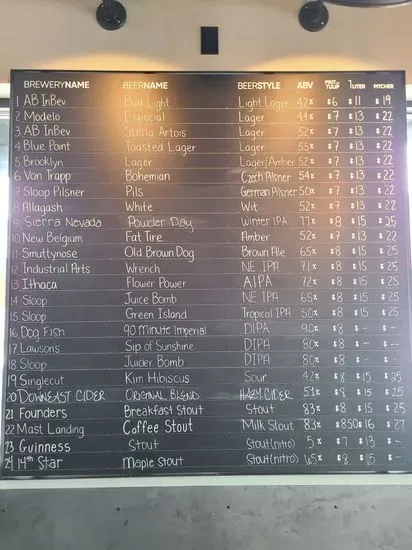 BREWERYNAME BEERNAME BEERSTYLE ABV PINT/TULIP 1 LITER PITCHER
1 AB InBev Bud Light Light Lager 4.2% $6 $11 $19
2 Modelo Especial Lager 4.4% $7 $13 $22
3 AB InBev Stella Artois Lager 5.2% $7 $13 $22
4 Blue Point Toasted Lager Lager 5.5% $7 $13 $22
5 Brooklyn Lager Lager/Amber 5.2% $7 $13 $22
6 Von Trapp Bohemian Czech Pilsner 5.4% $7 $13 $22
7 Sloop Pilsner Pils German Pilsner 5.0% $7 $13 $22
8 Allagash White Wit 5.2% $7 $13 $22
9 Sierra Nevada Powder Day Winter IPA 7.7% $8 $15 $25
10 New Belgium Fat Tire Amber 5.2% $7 $13 $22
11 Smuttynose Old Brown Dog Brown Ale 6.5% $8 $15 $25
12 Industrial Arts Wrench NE IPA 7.1% $8 $15 $25
13 Ithaca Flower Power AIPA 7.2% $8 $15 $25
14 Sloop Juice Bomb NE IPA 6.5% $8 $15 $25
15 Sloop Green Island Tropical IPA 5.0% $8 $15 $25
16 Dog Fish 90 Minute Imperial DIPA 9.0% $8 $- $-
17 Lawsons Sip of Sunshine DIPA 8.0% $8 $- $-
18 Sloop Juicier Bomb DIPA 8.0% $8 $- $-
19 Singlecut Kim Hibiscus Sour 4.2% $8 $15 $25
20 DOWNEAST CIDER ORIGINAL BLEND HAZY CIDER 5.1% $8 $15 $25
21 Founders Breakfast Stout Stout 8.3% $8 $15 $25
22 Mast Landing Coffee Stout Milk Stout 8.3% $8.50 $16 $27
23 Guinness Stout Stout(nitro) 5% $7 $13 $-
24 14th Star Maple Stout Stout(nitro) 6.5% $8 $15 $-